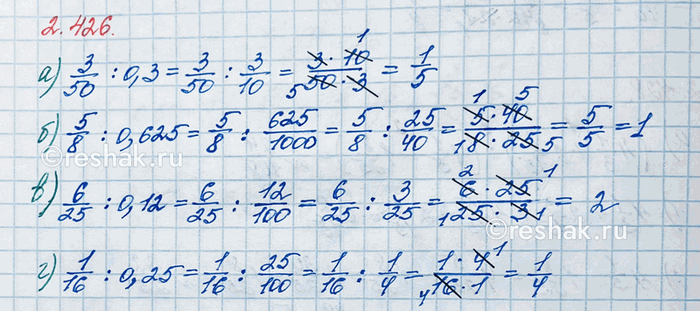 2.426.
а) 3/50 : 0,3 = 3/50 : 3/10 = 3 · 10 1 / 5 50 · 3 = 1/5
б) 5/8 : 0,625 = 5/8 : 625/1000 = 5/8 : 25/40 = 1 5 · 40 5 / 1 8 · 25 5 = 5/5 = 1
в) 6/25 : 0,12 = 6/25 : 12/100 = 6/25 : 3/25 = 2 6 · 25 1 / 1 25 · 3 1 = 2
г) 1/16 : 0,25 = 1/16 : 25/100 = 1/16 : 1/4 = 1 · 4 1 / 4 16 · 1 = 1/4
©reshak.ru
©reshak.ru
©reshak.ru